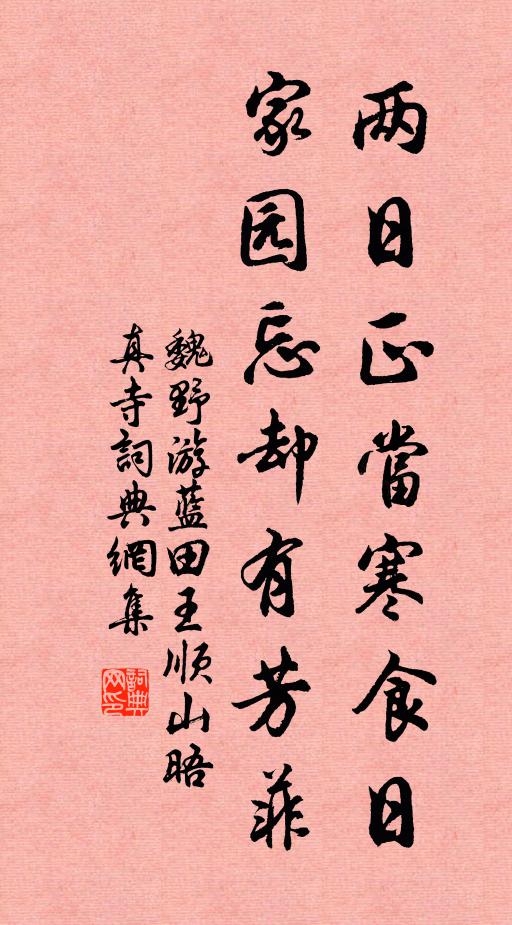 两日正當寒食日
家园忘却有芳菲
魏野游藍田王順山晤
真寺詞典網集
詞典网印